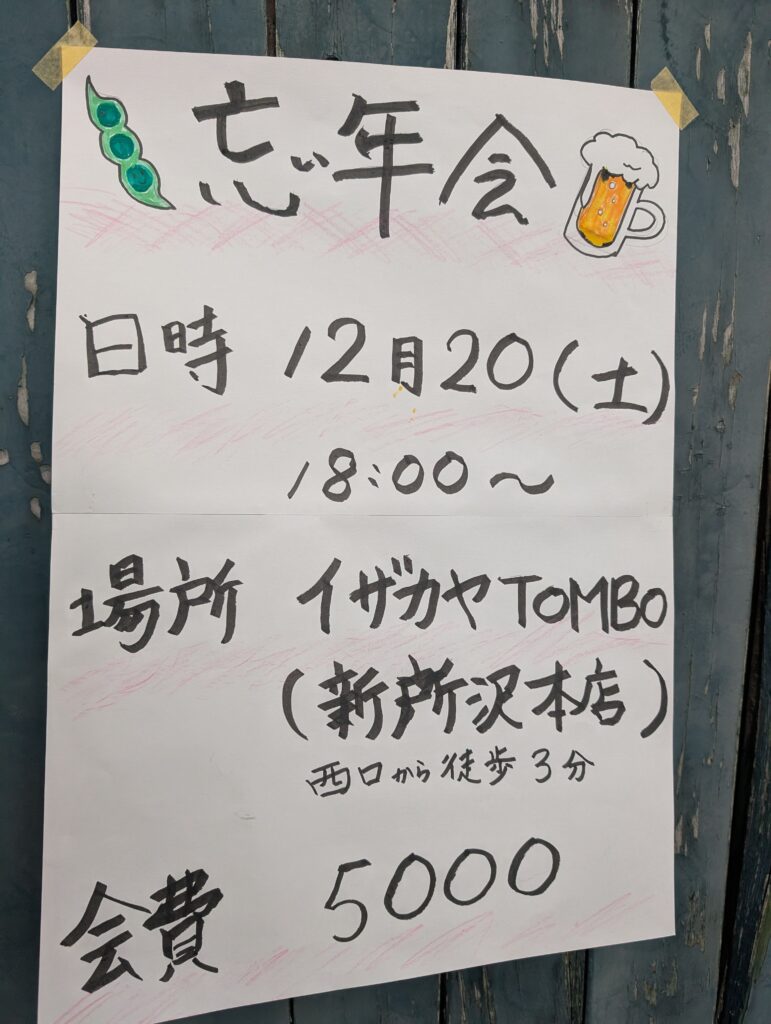 忘年会
日時 12月20(土)
18:00〜
場所 イザカヤTOMBO
(新所沢本店)
西口から徒歩3分
会費 5000